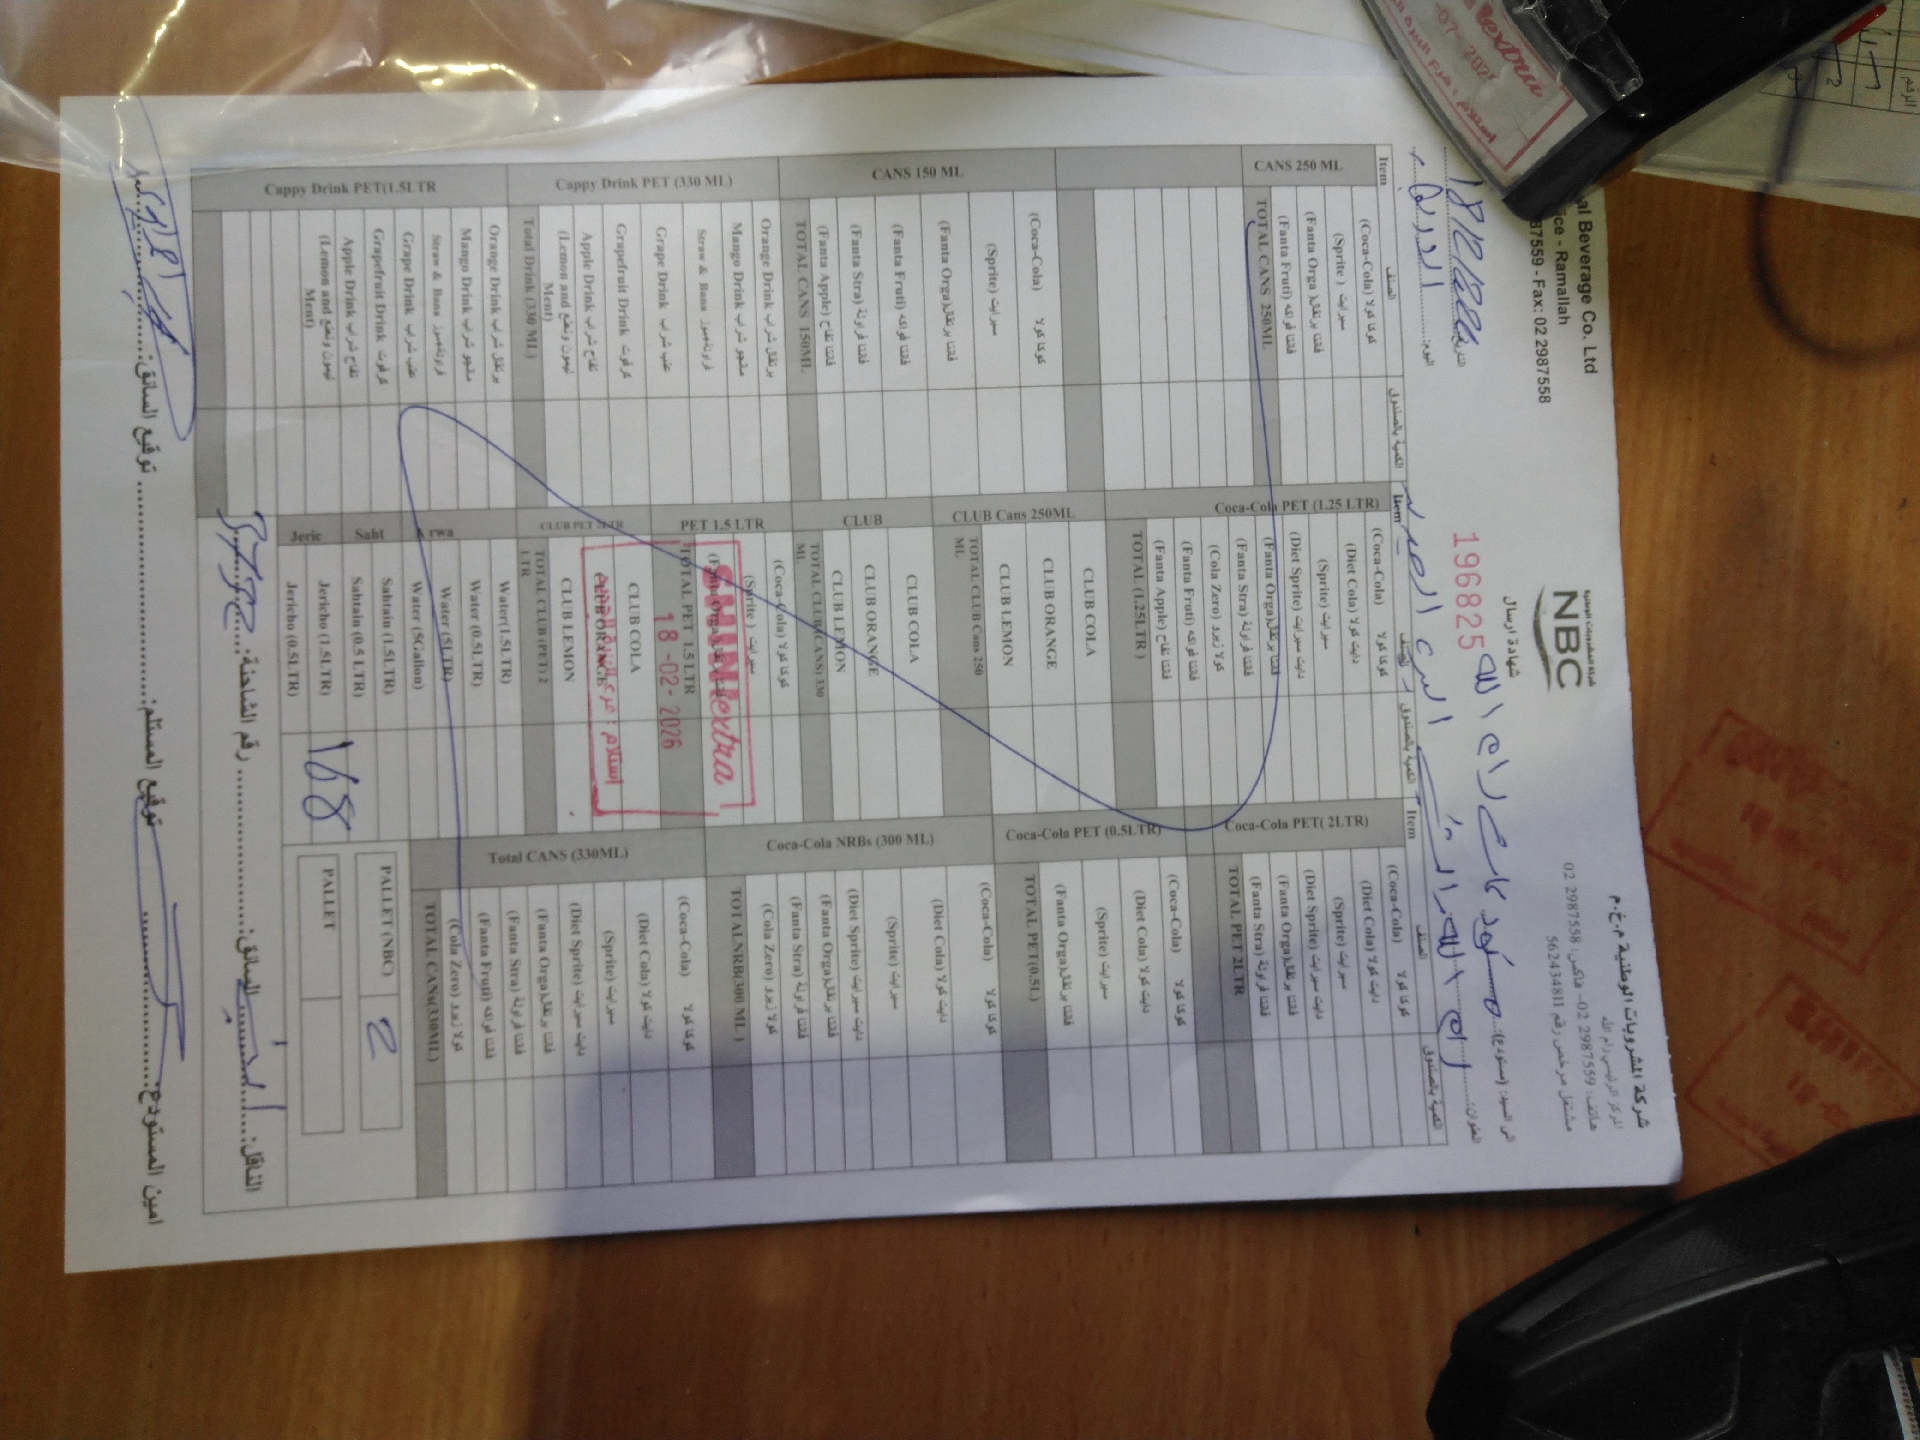 شركة المشروبات الوطنية م.خ.م
المركز الرئيسي رام الله
هاتف: 2987559 02- فاكس: 2987558 02
مشتغل مرخص رقم 562434811
NBC
شركة المشروبات الوطنية
al Beverage Co. Ltd
ice - Ramallah
87559 - Fax: 02 2987558
شهادة ارسال
196825
الى السيد: (مستودع):
رام الله
العنوان:
رام الله
التاريخ:
اليوم:
Item الصنف الكمية بالصندوق
CANS 250 ML
(Coca-Cola) كوكا كولا
(Sprite) سبرايت
(Fanta Orga) فنتا برتقال
(Fanta Fruti) فنتا فواكه
TOTAL CANS 250ML
CANS 150 ML
(Coca-Cola) كوكا كولا
(Sprite) سبرايت
(Fanta Orga) فنتا برتقال
(Fanta Fruti) فنتا فواكه
(Fanta Stra) فنتا فراولة
(Fanta Apple) فنتا تفاح
TOTAL CANS 150ML
Cappy Drink PET (330 ML)
Orange Drink برتقال شراب
Mango Drink مانجو شراب
Straw & Bana فراولة+موز
Grape Drink عنب شراب
Grapefruit Drink كرفوت
Apple Drink تفاح شراب
(Lemon and Ment) ليمون ونعنع
Total Drink (330 ML)
Cappy Drink PET(1.5LTR
Orange Drink برتقال شراب
Mango Drink مانجو شراب
Straw & Bana فراولة+موز
Grape Drink عنب شراب
Grapefruit Drink كرفوت
Apple Drink تفاح شراب
(Lemon and Ment) ليمون ونعنع
Item الصنف الكمية بالصندوق
Coca-Cola PET (1.25 LTR)
(Coca-Cola) كوكا كولا
(Diet Cola) دايت كولا
(Sprite) سبرايت
(Diet Sprite) دايت سبرايت
(Fanta Orga) فنتا برتقال
(Fanta Stra) فنتا فراولة
(Cola Zero) كولا زيرو
(Fanta Fruti) فنتا فواكه
(Fanta Apple) فنتا تفاح
TOTAL (1.25LTR)
CLUB Cans 250ML
CLUB COLA
CLUB ORANGE
CLUB LEMON
TOTAL CLUB Cans 250 ML
CLUB
CLUB COLA
CLUB ORANGE
CLUB LEMON
TOTAL CLUB(CANS) 330 ML
PET 1.5 LTR
(Coca-Cola) كوكا كولا
(Sprite) سبرايت
(Fanta Orga) فنتا برتقال
TOTAL PET 1.5 LTR
CLUB PET 2LTR
CLUB COLA
CLUB ORANGE
CLUB LEMON
TOTAL CLUB (PET) 2 LTR
Arwa
Water(1.5LTR)
Water (0.5LTR)
Water (5LTR)
Water (5Gallon)
Saht
Sahtain (1.5LTR)
Sahtain (0.5 LTR)
Jeric
Jericho (1.5LTR) 168
Jericho (0.5LTR)
Item الصنف الكمية بالصندوق
Coca-Cola PET( 2LTR)
(Coca-Cola) كوكا كولا
(Diet Cola) دايت كولا
(Sprite) سبرايت
(Diet Sprite) دايت سبرايت
(Fanta Orga) فنتا برتقال
(Fanta Stra) فنتا فراولة
TOTAL PET 2LTR
Coca-Cola PET (0.5LTR)
(Coca-Cola) كوكا كولا
(Diet Cola) دايت كولا
(Sprite) سبرايت
(Fanta Orga) فنتا برتقال
TOTAL PET(0.5L)
Coca-Cola NRBs (300 ML)
(Coca-Cola) كوكا كولا
(Diet Cola) دايت كولا
(Sprite) سبرايت
(Diet Sprite) دايت سبرايت
(Fanta Orga) فنتا برتقال
(Fanta Stra) فنتا فراولة
(Cola Zero) كولا زيرو
TOTALNRB(300 ML)
Total CANS (330ML)
(Coca-Cola) كوكا كولا
(Diet Cola) دايت كولا
(Sprite) سبرايت
(Diet Sprite) دايت سبرايت
(Fanta Orga) فنتا برتقال
(Fanta Stra) فنتا فراولة
(Fanta Fruti) فنتا فواكه
(Cola Zero) كولا زيرو
TOTAL CANs(330ML)
PALLET (NBC) 2
PALLET
18-02-2026
الناقل: السائق: رقم الشاحنة:
امين المستودع: توقيع المستلم: توقيع السائق: